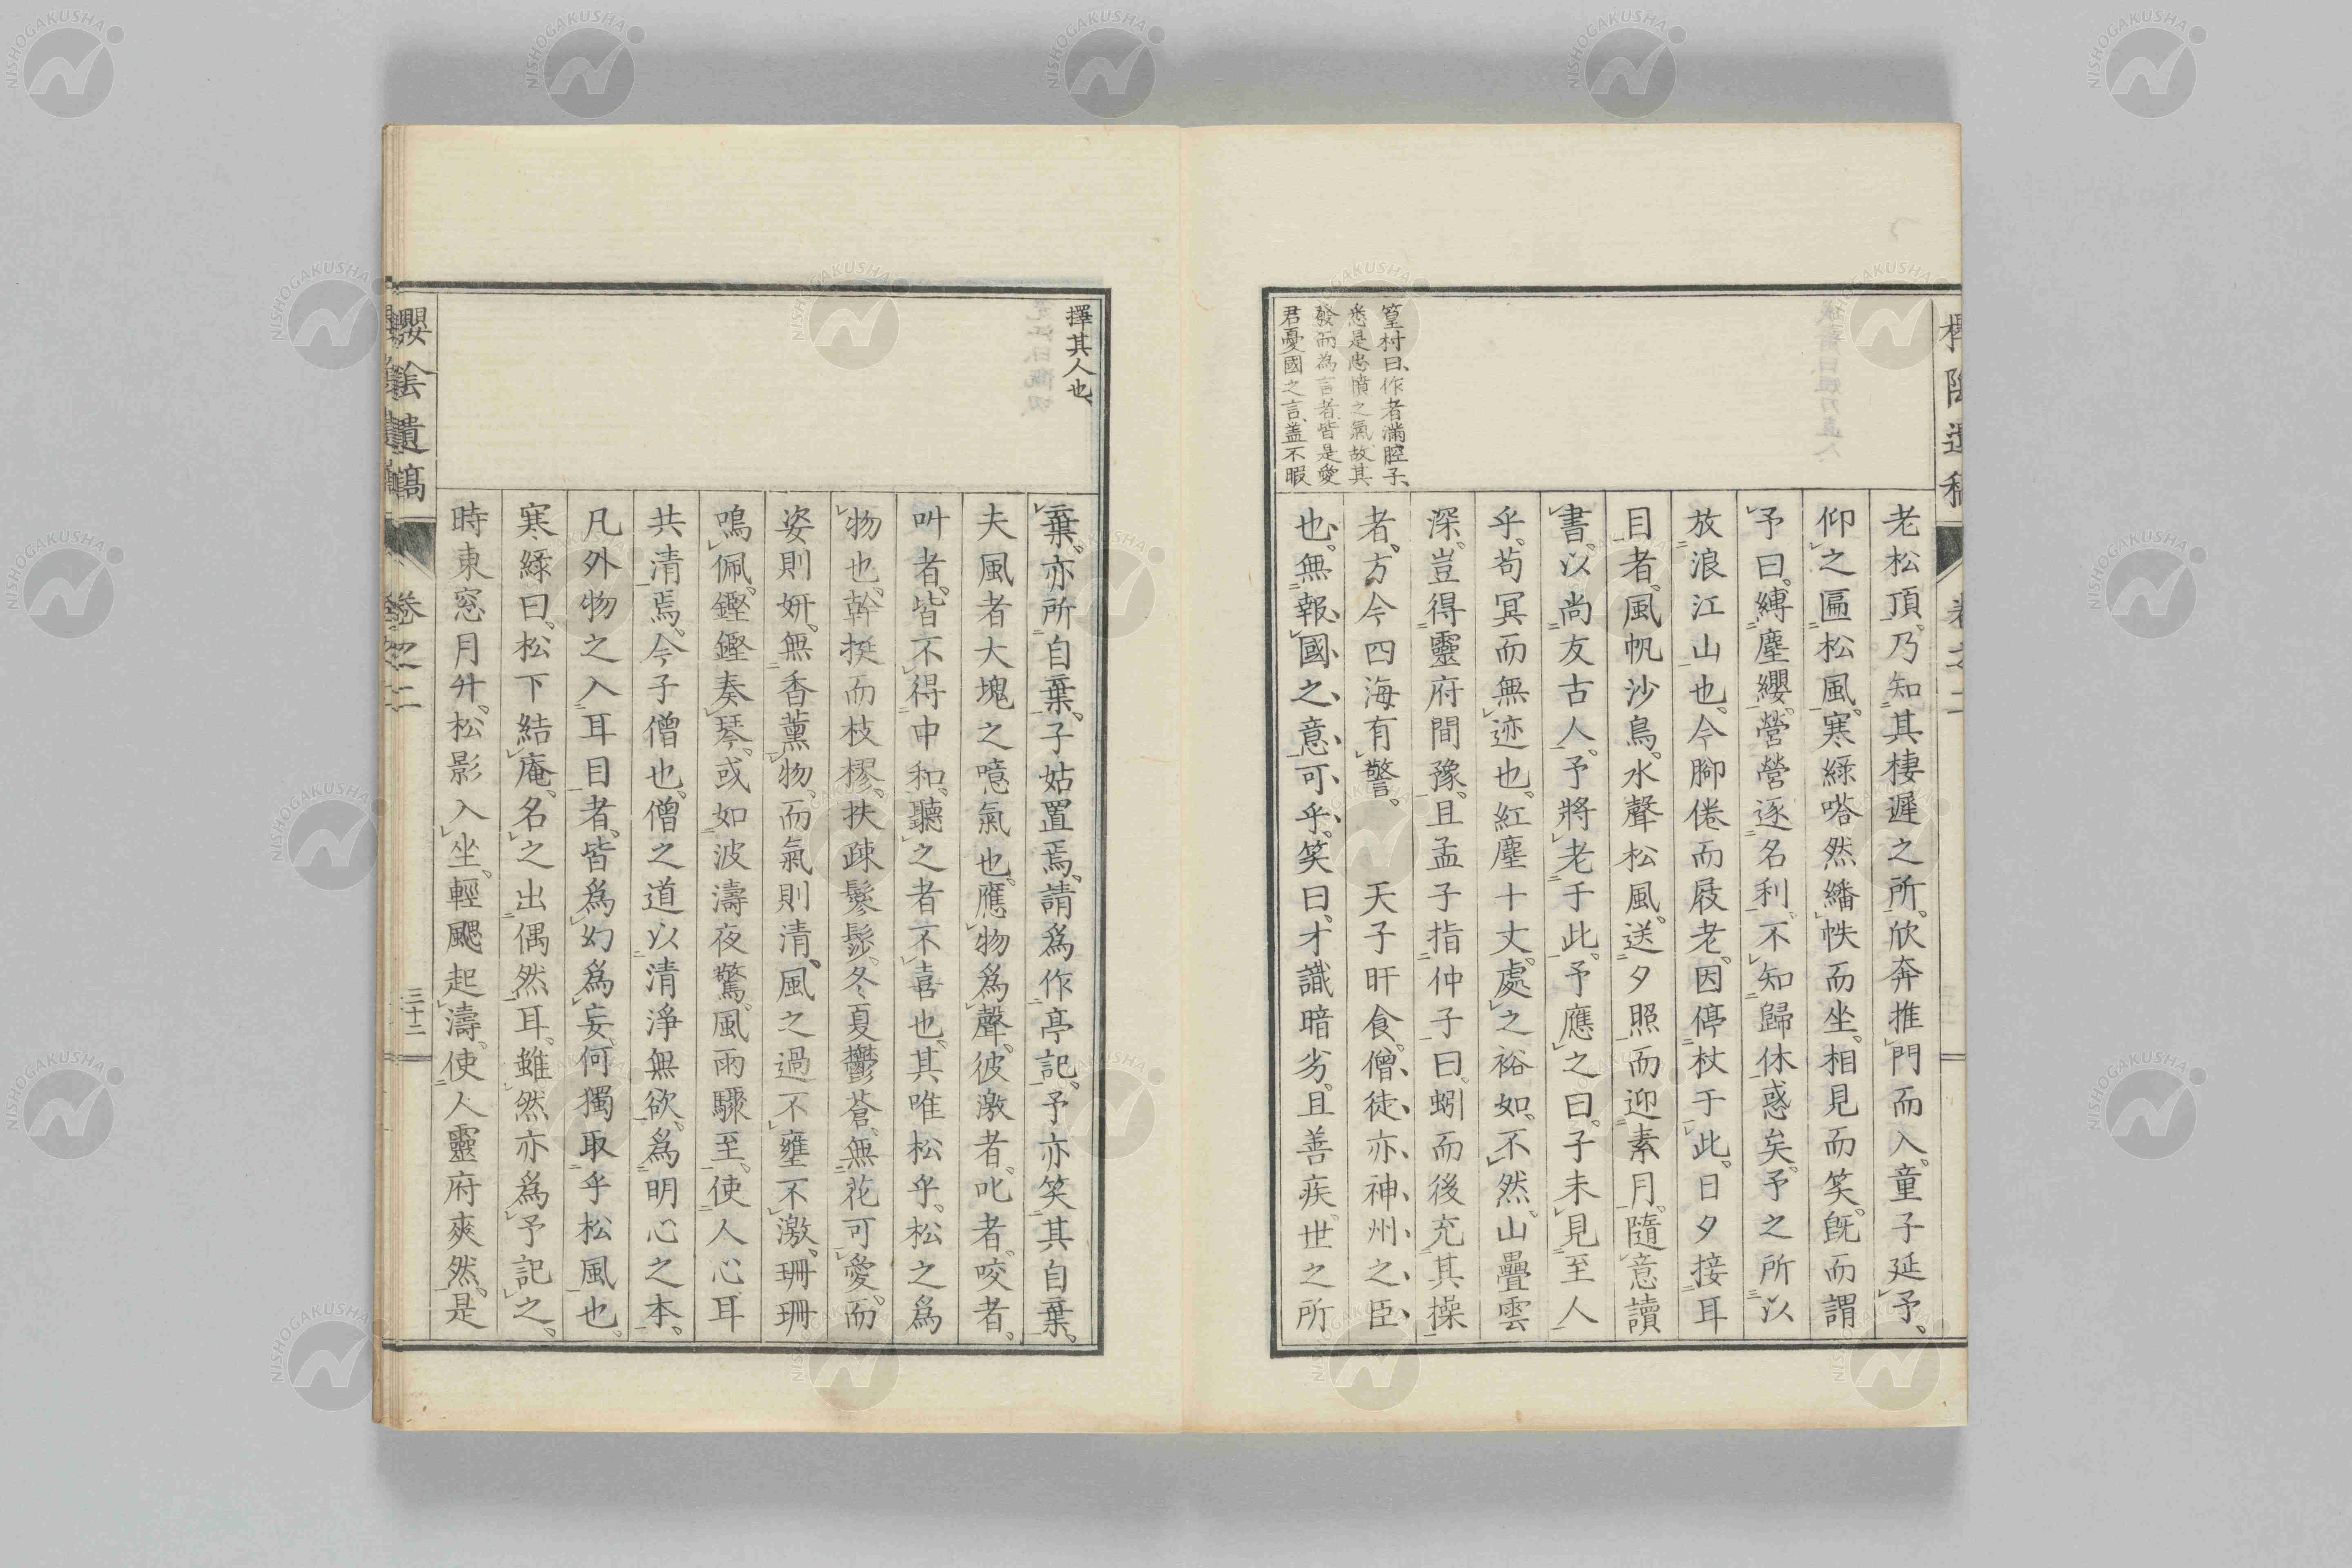 老松頂。乃知其棲遲之所。欣奔推門而入。童子延予。
仰之匾松風。寒綠嗒然繙帙而坐。相見而笑。既而謂
予曰。縛塵纓。營營逐名利。不知歸休惑矣。予之所以
放浪江山也。今腳倦而屐老。因停杖于此。日夕接耳
目者。風帆沙鳥。水聲松風。送夕照而迎素月。隨意讀
書。以尚友古人。予將老于此。予應之曰。子未見至人
乎。苟冥而無迹也。紅塵十丈。處之裕如。不然。山疊雲
深。豈得靈府間豫。且孟子指仲子曰。蚓而後充其操
者。方今四海有警。　天子旰食。僧徒亦神州之臣
也。無報國之意可乎。笑曰。才識暗劣。且善疾。世之所
篁村曰、作者滿腔子、
悉是忠憤之氣、故其
發而為言者、皆是愛
君憂國之言、蓋不暇
櫻陰遺稿
卷之二
擇其人也、
棄。亦所自棄。子姑置焉。請爲作亭記。予亦笑其自棄。
夫風者大塊之噫氣也。應物爲聲。彼激者。叱者。咬者。
叫者。皆不得中和。聽之者不喜也。其唯松乎。松之爲
物也。幹挺而枝樛。扶疎鬖髿。冬夏鬱蒼。無花可愛。而
姿則妍。無香薰物。而氣則清。風之過。不壅不激。珊珊
鳴佩。鏗鏗奏琴。或如波濤夜驚。風雨驟至。使人心耳
共清焉。今子僧也。僧之道以清淨無欲。爲明心之本。
凡外物之入耳目者。皆爲幻爲妄。何獨取乎松風也。
寒綠曰。松下結庵。名之出偶然耳。雖然亦爲予記之。
時東窓月升。松影入坐。輕颸起濤。使人靈府爽然。是
櫻陰遺稿
卷之二
三十二
NISHOGAKUSHA